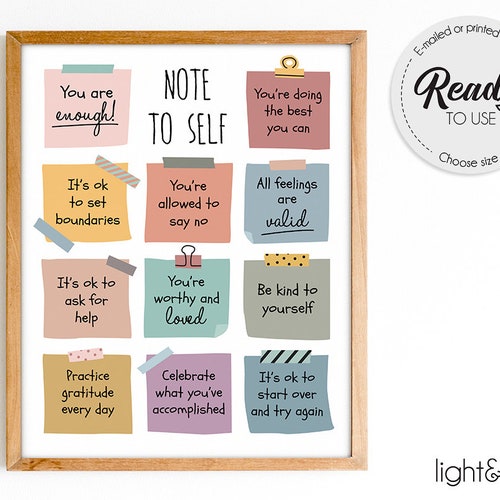 You are
enough!
NOTE
TO SELF
You're doing
the best
you can
It's ok
to set
boundaries
You're
allowed to
say no
All feelings
are
valid
It's ok to
ask for
help
You're
worthy and
loved
Be kind to
yourself
Practice
gratitude
every day
Celebrate
what you've
accomplished
It's ok to
start over
and try again
E-mailed or printed
Ready
TO USE
Choose size
light&